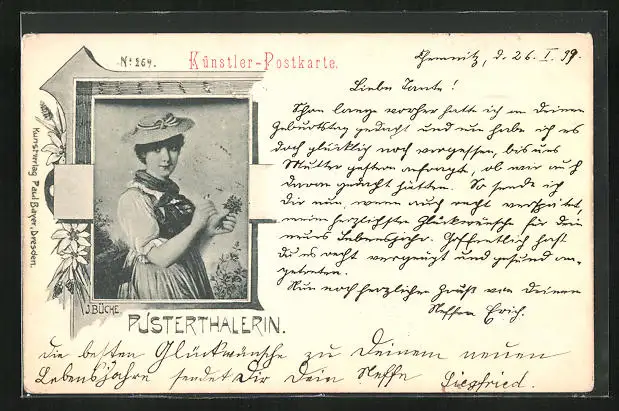 No. 264.
Künstler-Postkarte.
Chemnitz, d. 26. I. 99.
Liebe Tante!
Schon lange vorher hatte ich an Deinen
Geburtstag gedacht und nun habe ich es
doch glücklich noch vergessen, bis uns
Mutter gestern anfragt, ob wir auch
daran gedacht hätten. So sende ich
Dir nun, wenn auch recht verspätet,
meine herzlichsten Glückwünsche für Dein
neues Lebensjahr. Hoffentlich hast
Du es recht vergnügt und gesund an-
getreten.
Nun noch herzlichen Gruß von Deinem
Neffen Erich.
Kunstverlag Paul Bayer, Dresden.
J. BÜCHE
PUSTERTHALERIN.
Die besten Glückwünsche zu Deinem neuen
Lebensjahre sendet Dir Dein Neffe Siegfried.